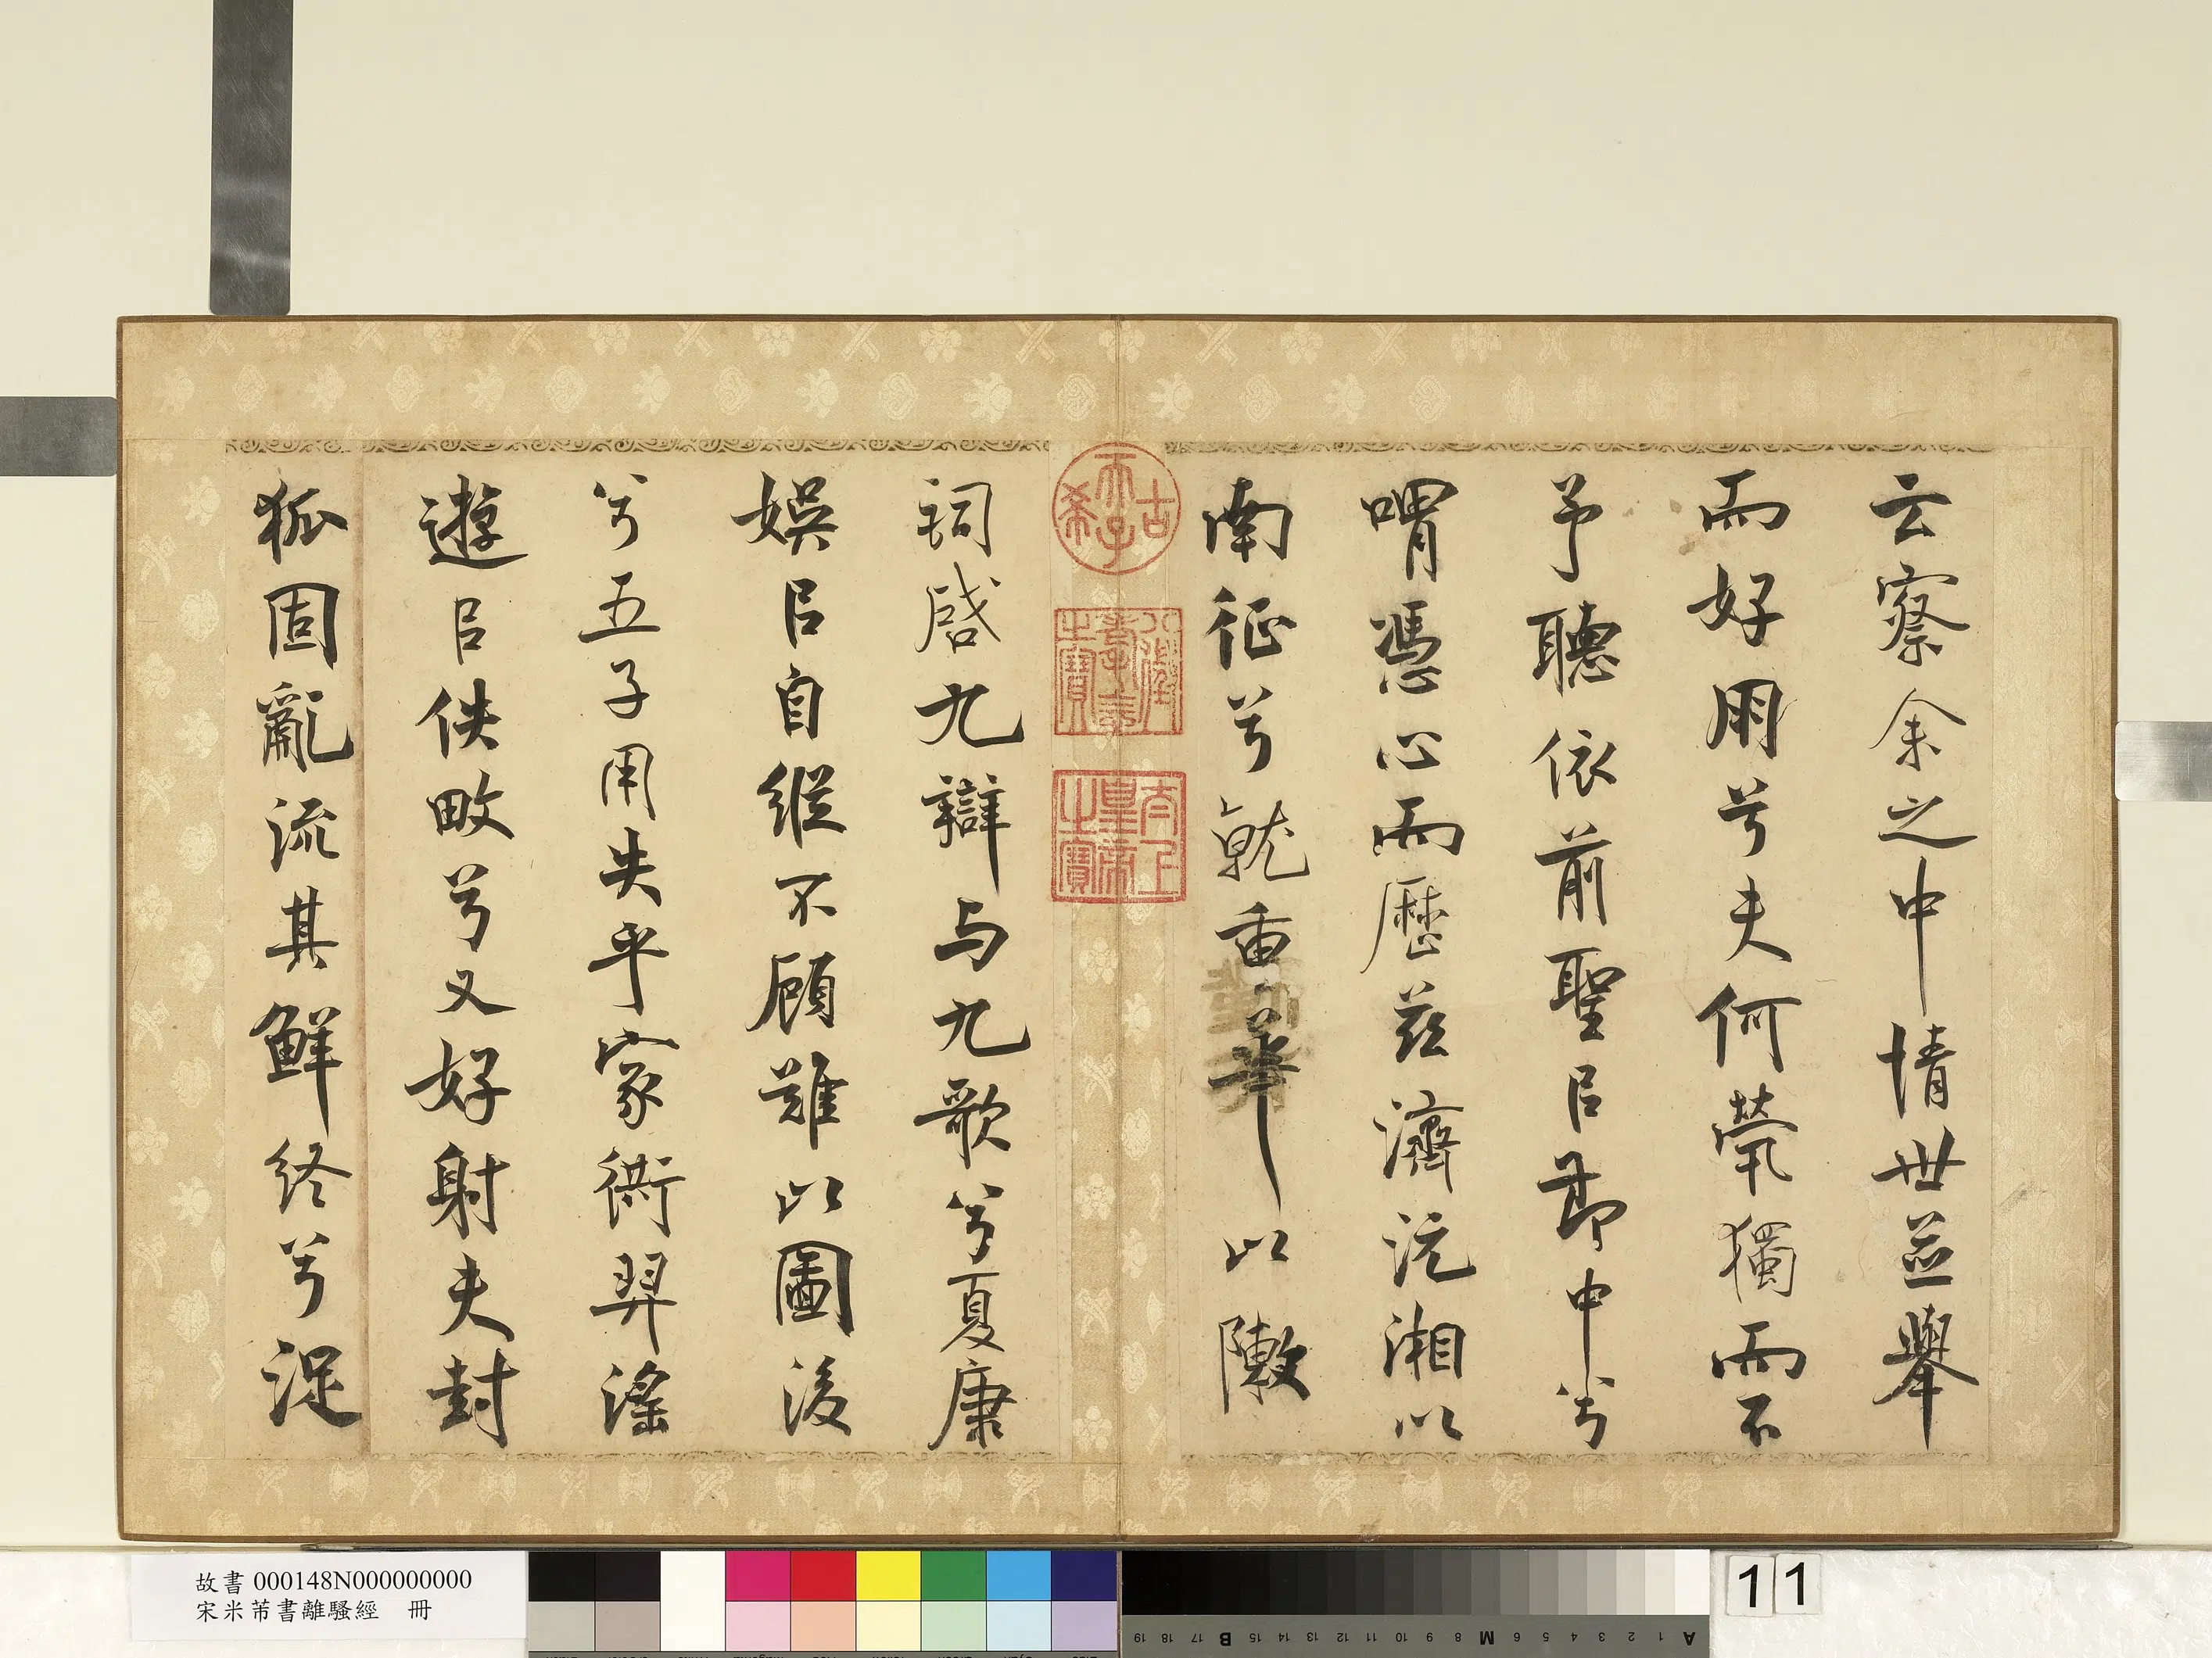 云察余之中情世並舉
而好朋兮夫何煢獨而不
予聽依前聖㠯節中兮
喟憑心而歷茲濟沅湘以
南征兮就重華以敶
詞啓九辯与九歌兮夏康
娛㠯自縱不顧難以圖後
兮五子用失乎家衖羿滛
遊㠯佚畋兮又好射夫封
狐固亂流其鮮終兮浞
古希天子
八徵耄念之寶
太上皇帝之寶
故書 000148N000000000
宋米芾書離騷經 冊
11
A 1 2 3 4 5 6 M 8 9 10 11 12 13 14 15 B 17 18 19